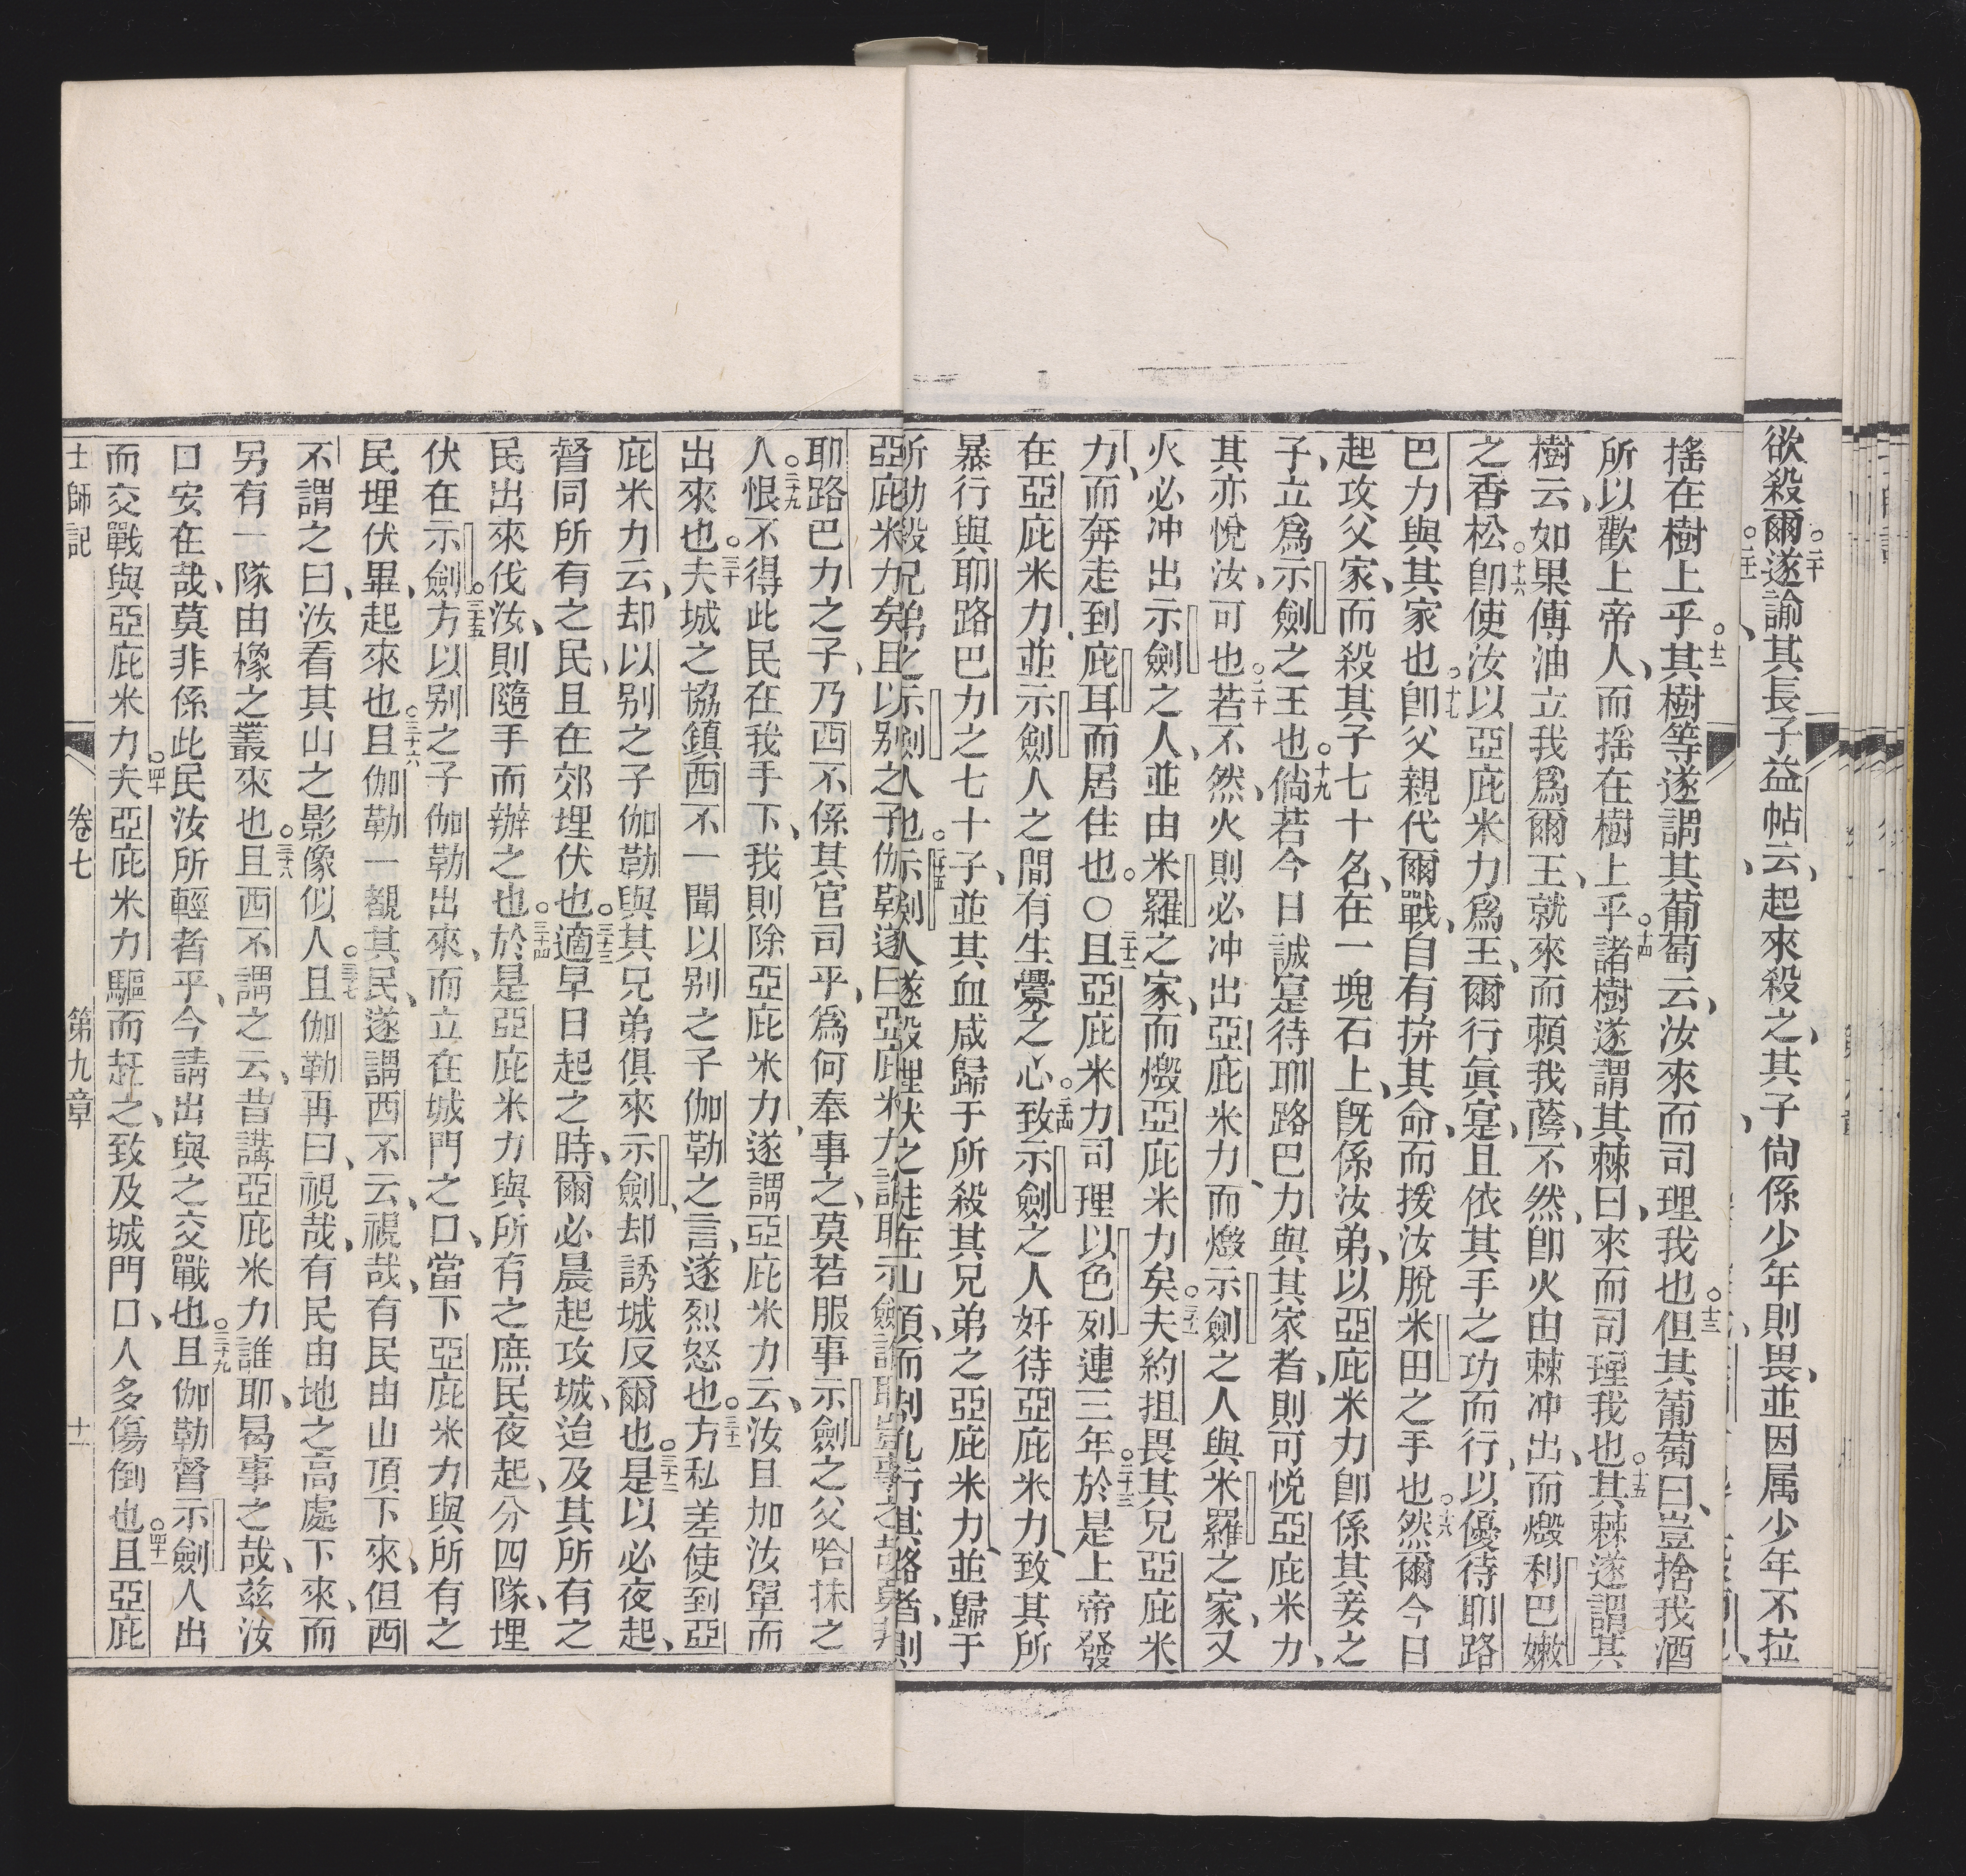 欲殺爾○二十遂諭其長子益帖云、起來殺之、其子尙係少年則畏、並因属少年不拉
搖在樹上乎○十二其樹等遂謂其葡萄云、汝來而司理我也○十三但其葡萄曰、豈捨我酒
所以歡上帝人、而搖在樹上乎○十四諸樹遂謂其棘曰、來而司理我也○十五其棘遂謂其
樹云、如果傳油立我爲爾王、就來而頼我蔭、不然、卽火由棘冲出、而燬利巴嫩
之香松○十六卽使汝以亞庇米力爲王、爾行眞寔、且依其手之功而行、以優待耶路
巴力與其家也○十七卽父親代爾戰、自有拚其命、而援汝脫米田之手也○十八然爾今日
起攻父家、而殺其子七十名、在一塊石上、旣係汝弟、以亞庇米力卽係其妾之
子、立爲示劍之王也○十九倘若今日誠寔待耶路巴力與其家者、則可悅亞庇米力、
其亦悅汝、可也○二十若不然、火則必冲出亞庇米力、而燬示劍之人與米羅之家、又
火必冲出示劍之人、並由米羅之家、而燬亞庇米力矣○二十一夫約担畏其兄亞庇米
力、而奔走到庇耳而居住也。○二十二且亞庇米力司理以色列連三年○二十三於是上帝發
在亞庇米力並示劍人之間有生釁之心○二十四致示劍之人奸待亞庇米力、致其所
暴行與耶路巴力之七十子、並其血咸歸于所殺其兄弟之亞庇米力、並歸于
所助殺兄弟之示劍人也○二十五示劍人遂設埋伏之徒在山頂、而刦凡行其路者、則
亞庇米力矣且以别之子伽勒遂曰亞庇米力誰耶示劍誰耶豈事之哉莫非
耶路巴力之子、乃西不係其官司乎、爲何奉事之、莫若服事示劍之父哈抹之
人○二十九恨不得此民在我手下、我則除亞庇米力、遂謂亞庇米力云、汝且加汝軍而
出來也○三十夫城之協鎮西不一聞以别之子伽勒之言、遂烈怒也○三十一方私差使到亞
庇米力云、却以别之子伽勒與其兄弟俱來示劍、却誘城反爾也○三十二是以必夜起、
督同所有之民、且在郊埋伏也○三十三適早日起之時、爾必晨起攻城、迨及其所有之
民出來伐汝、則隨手而辦之也○三十四於是亞庇米力與所有之庶民夜起、分四隊、埋
伏在示劍○三十五方以别之子伽勒出來、而立在城門之口、當下亞庇米力與所有之
民埋伏畢、起來也○三十六且伽勒一覩其民、遂謂西不云、視哉、有民由山頂下來、但西
不謂之曰、汝看其山之影像似人○三十七且伽勒再曰、視哉、有民由地之高處下來、而
另有一隊由橡之叢來也○三十八且西不謂之云、昔講亞庇米力誰耶、曷事之哉、兹汝
口安在哉、莫非係此民汝所輕者乎、今請出與之交戰也○三十九且伽勒督示劍人出
而交戰與亞庇米力○四十夫亞庇米力驅而赶之、致及城門口、人多傷倒也○四十一且亞庇
士師記 卷七 第九章 十一